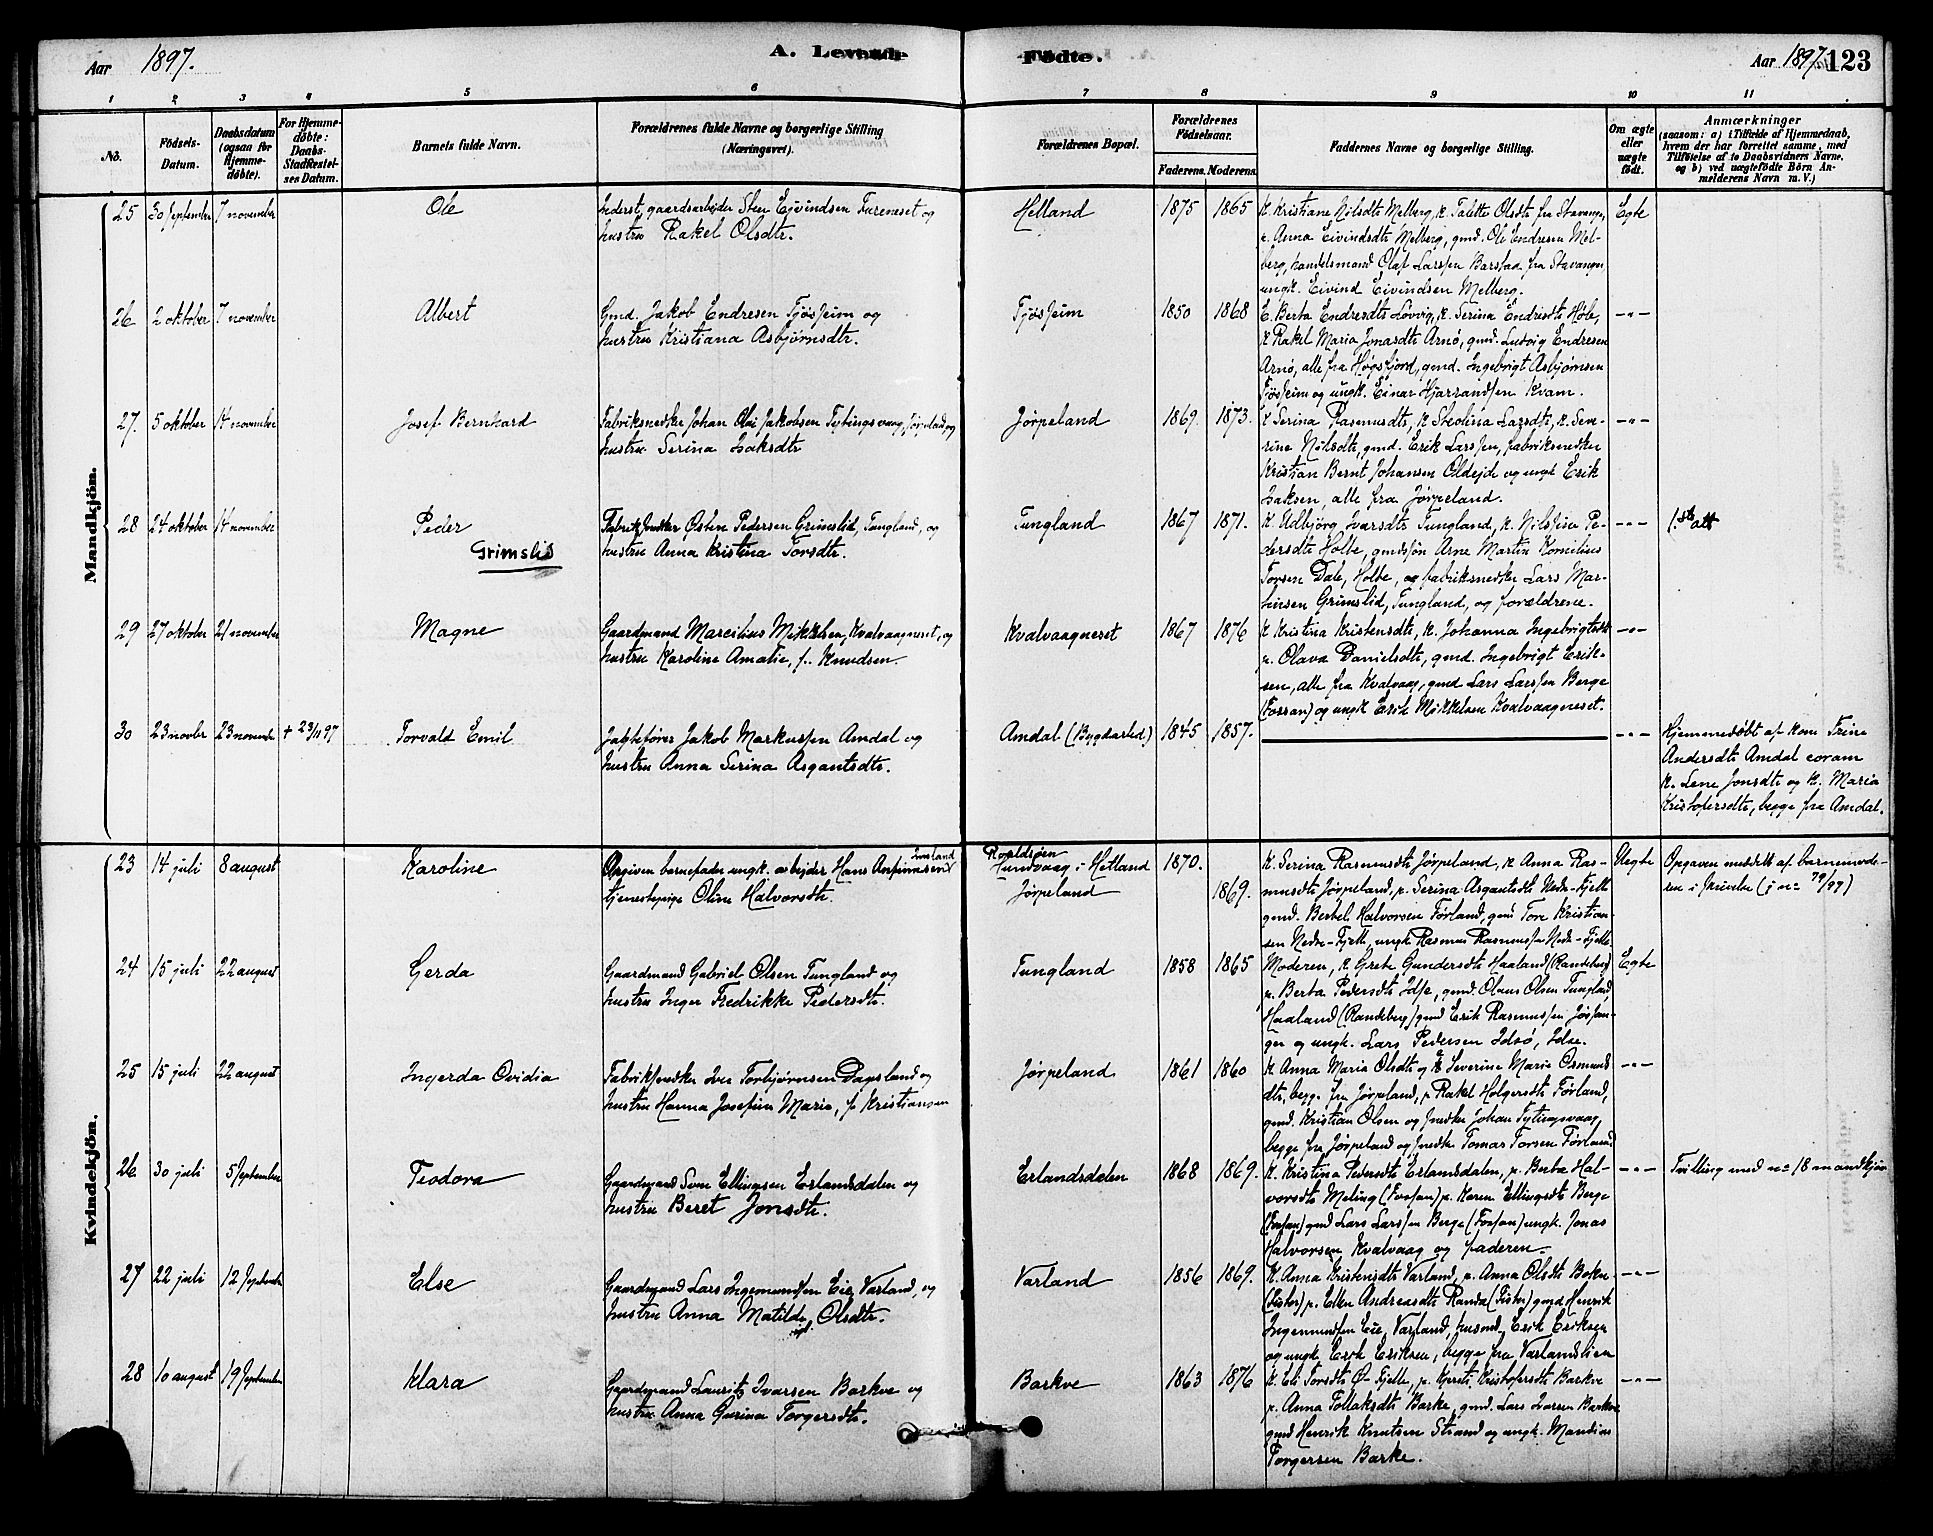 Aar 1897.
A. Levende Fødte.
Aar 1897 123
1 2 3 4 5 6 7 8 9 10 11
No.
Fødsels-
Datum.
Daabsdatum
(ogsaa for
Hjemme-
døbte).
For Hjemme-
døbte:
Daabs-
Stadfestel-
ses Datum.
Barnets fulde Navn.
Forældrenes fulde Navne og borgerlige Stilling
(Næringsvei).
Forældrenes Bopæl.
Forældrenes
Fødselsaar.
Faderens. Moderens.
Faddernes Navne og borgerlige Stilling.
Om ægte
eller
uægte
født.
Anmærkninger
(saasom: a) i Tilfælde af Hjemmedaab,
hvem der har forrettet samme, med
Tilføielse af to Daabsvidners Navne,
og b) ved uægtefødte Børn An-
melderens Navn m. V.)
Mandkjön.
25 30 September 7 november
Ole
Inderst, gaardsarbeider Sten Eivindsen Fureneset og
hustru Rakel Olsdtr.
Helland
1875 1865
K. Kristiane Nilsdtr Melberg, K. Talette Olsdtr fra Stavanger,
p. Anna Eivindsdtr Melberg, gmd. Ole Endresen Mel-
berg, handelsmand Olaf Larssen Barstad fra Stavanger
ungk. Eivind Eivindsen Melberg.
Egte
26 2 oktober 7 november
Albert
Gmd. Jakob Endresen Tjøsheim og
hustru Kristiana Asbjørnsdtr.
Tjøsheim
1850 1868
E. Berta Endresdtr Løvvig, K. Serina Endresdtr Høle,
K Rakel Maria Jonasdtr Arnø, gmd. Ludvig Endresen
Arnø, alle fra Høgsfjord, gmd. Ingebrigt Asbjørnsen
Tjøsheim og ungk. Einar Hjarrandsen Kvam.
-"-
27. 5 oktober 14 november
Josef Bernhard
Fabriksnedker Johan Olai Jakobsen Tytingsvaag, Jørpeland og
hustru Serina Isaksdtr
Jørpeland
1869. 1873.
K Serina Rasmusdtr, K Steolina Larsdtr, K. Seve-
rine Nilsdtr, gmd. Erik Larssen, fabriksnedker
Kristian Bernt Johansen Oldejde og ungk Erik
Isaksen, alle fra Jørpeland.
-"-
28 24 oktober 14 november
Peder
Grimslid
Fabriksnedker Østen Pedersen Grimslid, Tungland, og
hustru Anna Kristina Torsdtr.
Tungland
1867 1871.
K. Udbjørg Ivarsdtr Tungland, K. Nilssina Pe-
dersdtr Holte, gmdssøn Arne Martin Kornilius
Torsen Dale, Holte, og fabriksnedker Lars Mar-
tinsen Grimslid, Tungland, og forældrene.
-"-
29 27 oktober 21 november
Magne
Gaardmand Marcelius Mikkelsen, Kvalvaagneset, og
hustru Karoline Amalie, f. Knudsen.
Kvalvaagneset
1867 1876
K Kristina Kristensdtr, K. Johanna Ingebrigtsdtr
p. Olava Danielsdtr, gmd. Ingebrigt Erik-
sen, alle fra Kvalvaag, gmd Lars Larssen Berge
(Forsan) og ungk Erik Mikkelsen Kvalvaagneset.
-"-
30 23 novbr 23 november + 23/11 97
Torvald Emil
Jagtefører Jakob Markussen Amdal og
hustru Anna Serina Asgautsdtr.
Amdal (Bygdarlid.)
1845 1857.
-"-
Hjemmedøbt af kone Trine
Andersdtr Amdal coram
K. Lene Jonsdtr og K. Maria
Kristofersdtr, begge fra Amdal.
Kvindekjön.
23 14 juli 8 august
Karoline
Opgiven barnefader ungk. arbeider Hans Anfinnsen
tjenestepige Oline Halvorsdtr.
Hundvaag i Hetland
Jørpeland
1870.
1869.
K. Serina Rasmusdtr Jørpeland, K Anna Ras-
musdtr Jørpeland, p. Serina Asgautsdtr Nedre-Fjelle
gmd. Bertel Halvorsen Førland, gmd Tore Kristian-
sen Nedre-Fjelle, ungk Rasmus Rasmussen Nedre-Fjelle.
Uegte
Opgaven meddelt af barnemode-
ren i skrivelse (j n= 79/97)
24 15 juli 22 august
Gerda
Gaardmand Gabriel Olsen Tungland og
hustru Inger Fredrikke Pedersdtr.
Tungland
1858 1865
Moderen, K Grete Gundersdtr Haaland (Randeberg)
p. Berta Pedersdtr Idse, gmd. Olaus Olsen Tungland,
Haaland (Randeberg) gmd Erik Rasmussen Jøssan-
ger og ungk. Lars Pedersen Idsø, Idse.
Egte
25 15 juli 22 august
Ingerda Ovidia
Fabriksnedker Iver Torbjørnsen Dagsland og
hustru Hanna Josefine Marie, f Kristiansen
Jørpeland
1861 1860
K Anna Maria Olsdtr og K Severine Marie Osmunds-
dtr, begge fra Jørpeland, p Rakel Holgersdtr Førland,
gmd. Kristian Olsen og snedker Johan Tytingsvaag,
begge fra Jørpeland og snedker Tomas Torsen Førland
-"-
26 30 juli 5 September
Teodora
Gaardmand Sven Ellingsen Erlandsdalen og
hustru Beret Jonsdtr.
Erlandsdalen
1868 1869.
K. Kristina Pedersdtr Erlandsdalen, p. Berta Hal-
vorsdtr Meling (Forsan) p. Karen Ellingsdtr Berge
(Forsan) gmd Lars Larssen Berge (Forsan) ungk. Jonas
Halvorsen Kvalvaag og faderen.
-"-
Tvilling med n= 18 mandkjøn
27 22 juli 12 September
Else
Gaardmand Lars Ingemundsen Eie, Varland, og
hustru Anna Matilde Olsdtr.
Varland
1856 1869.
K. Anna Kristensdtr Varland, p. Anna Olsdtr Bokn
(Fister) p. Ellen Andreasdtr Randa (Fister) gmd Henrik
Ingemundsen Eie, Varland, husmd. Erik Eriksen
og ungk. Erik Eriksen, begge fra Varlandslien
-"-
28 10 august 19 September
Klara
Gaardmand Laurits Ivarsen Barkve og
hustru Anna Gurina Torgersdtr.
Barkve
1863 1876
K. Eli Torsdtr Ø-Fjelle, p. Kristofersdtr Barkve
p. Anna Tollaksdtr Barke, gmd. Lars Ivarsen Barkve
gmd Henrik Knutsen Strand og ungk. Mandius
Torgersen Barke.
-"-